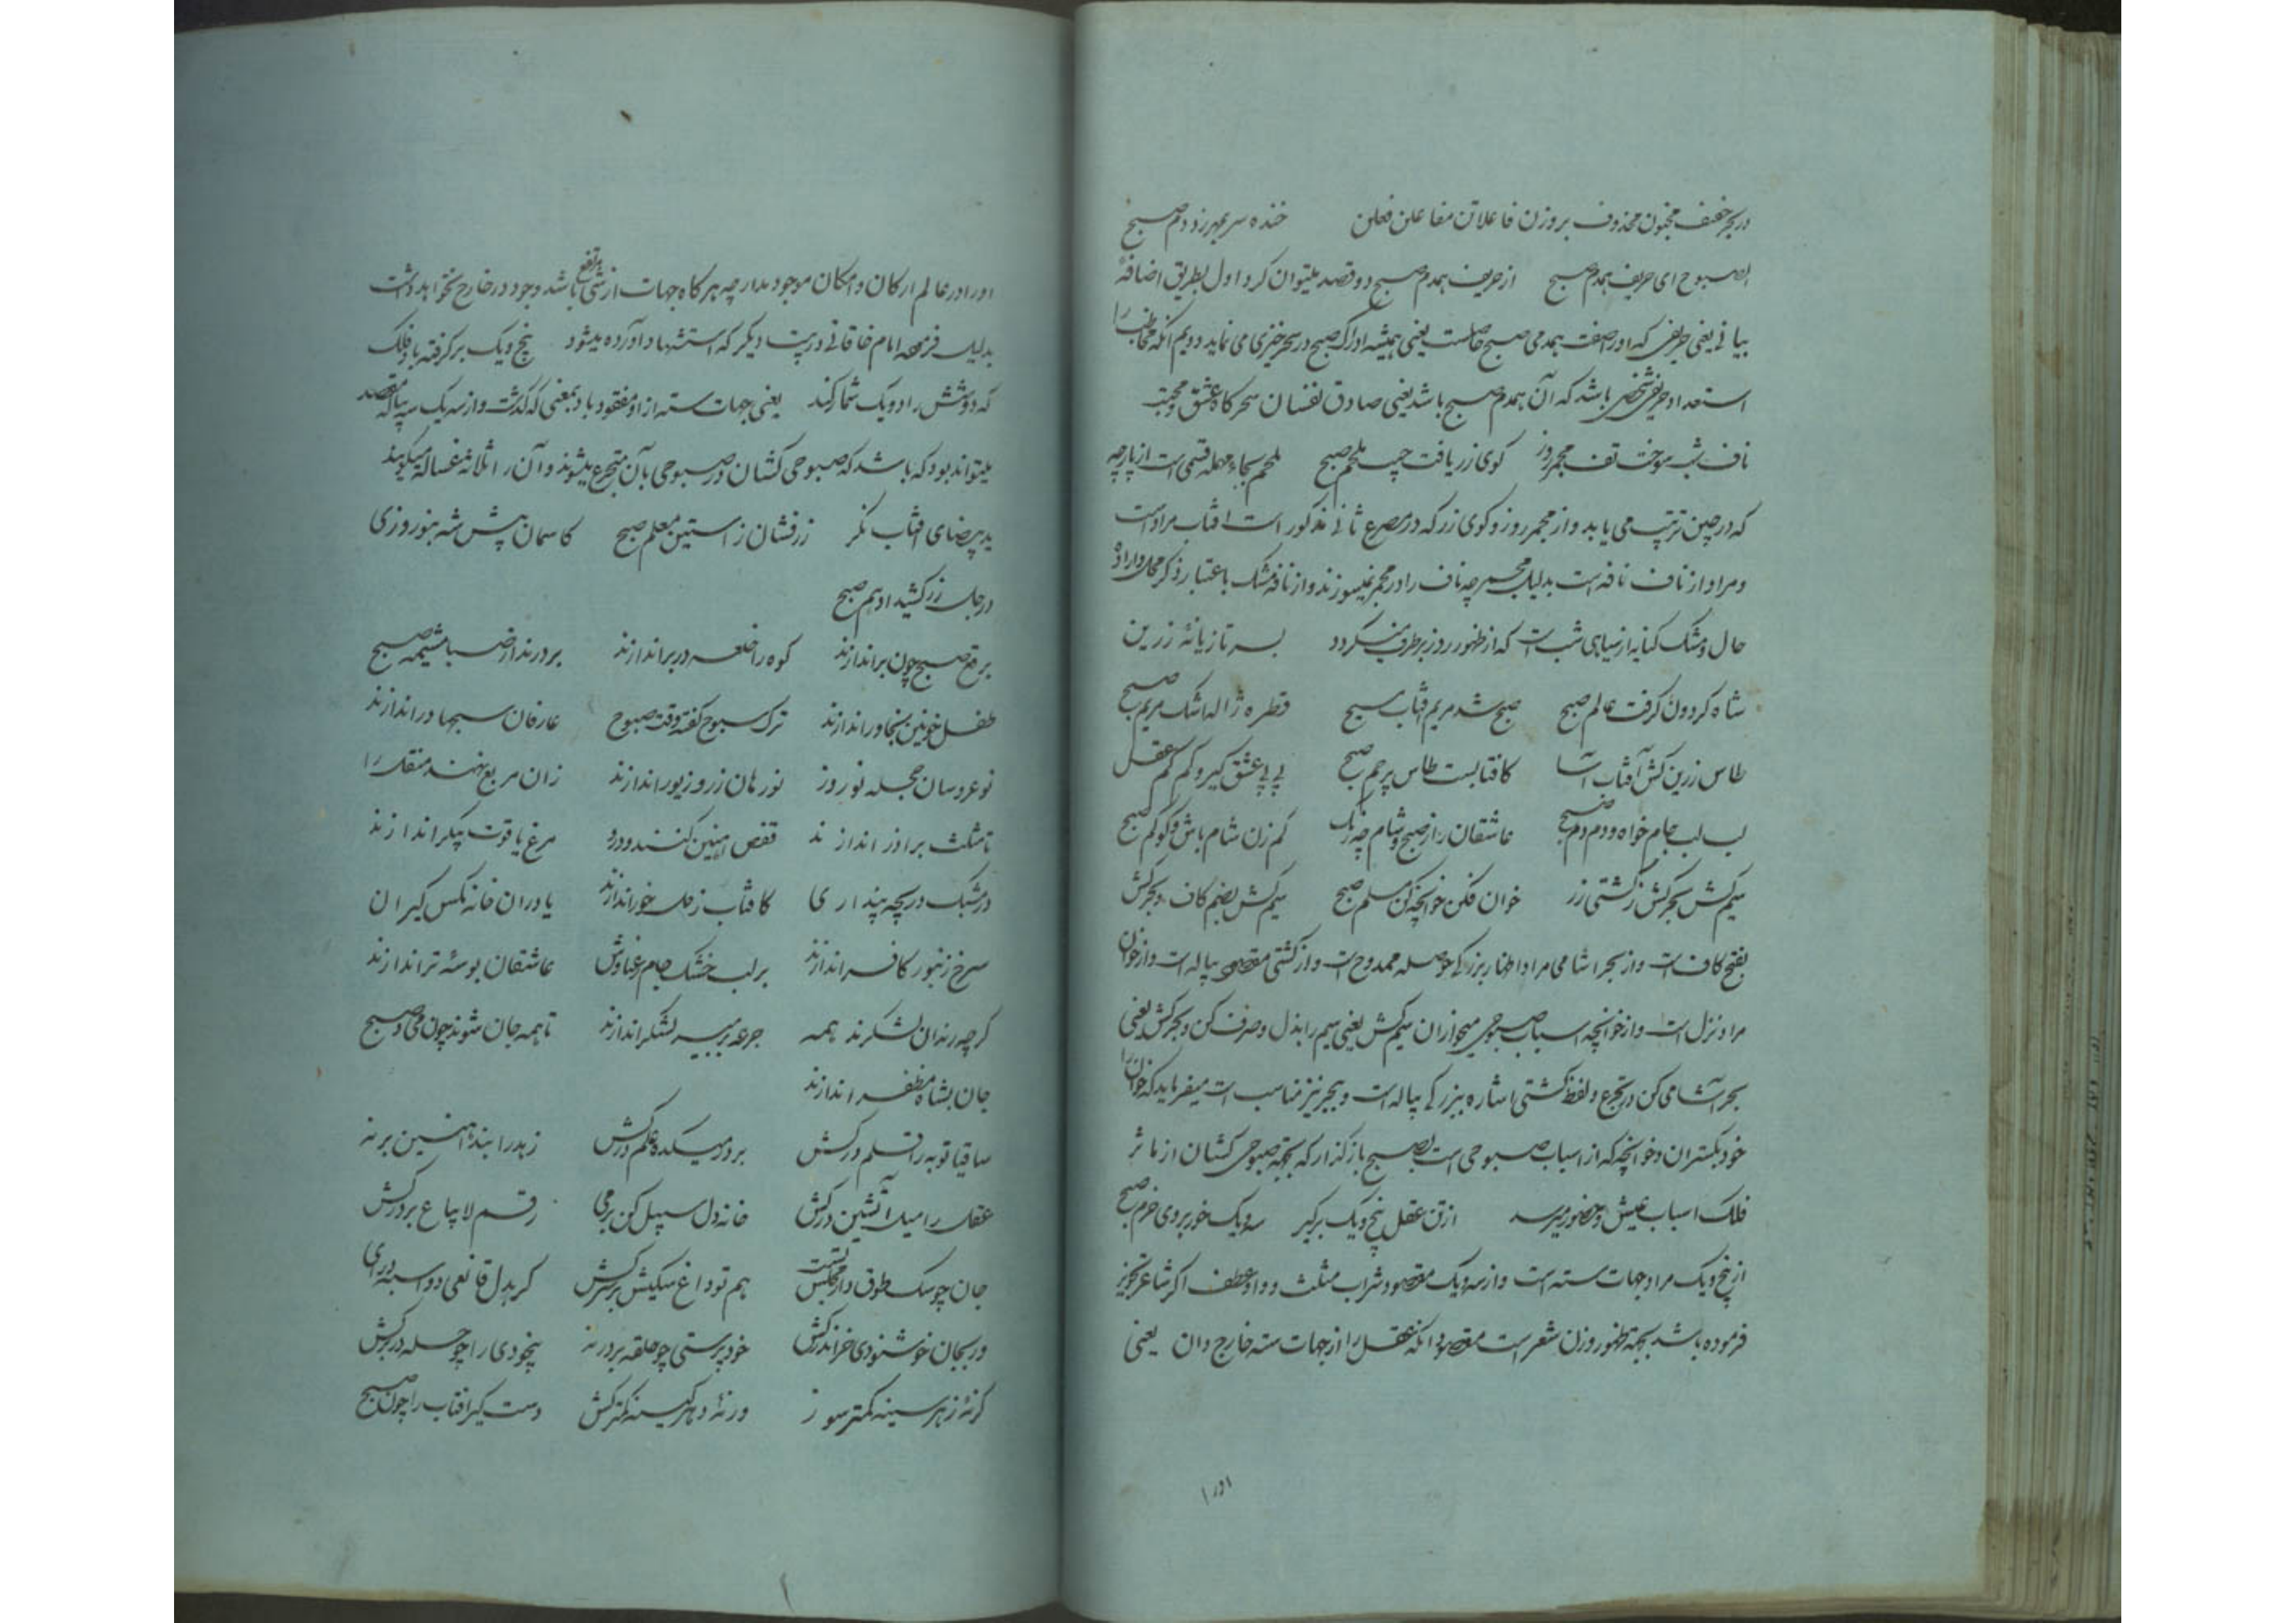 در بحر خفیف مخبون محذوف بر وزن فاعلاتن مفاعلن فعلن خنده سر بمهر زد دم صبح
الصبوح ای حریف همدم صبح از حریف همدم صبح دو قصد میتوان کرد اول بطریق اضافهٔ
بیانی یعنی حریفی که او را صفت همدمی صبح حاصلست یعنی همیشه ادراک صبح در سحرخیزی می نماید دویم آنکه مخاطب را
استعداد حریفی شخصی باشد که آن همدم صبح باشد یعنی صادق نفسان سحرکاه عشق و محبت
ناف شب سوخت تف مجمر روز کوی زر یافت جیب ملحم صبح ملحم بحاء مهمله قسمی است از پارچه
که در چین ترتیب می یابد و از مجمر روز و کوی زر که در مصرع ثانی مذکور است افتاب مراد است
و مراد از ناف نافه است بدلیل مجمر چه ناف را در مجمر نمیسوزند و از نافه مشک باعتبار ذکر محل و ارادهٔ
حال و مشک کنایه از سیاهی شب است که از ظهور روز برطرف میکردد بسر تازیانهٔ زرین
شاه کردون کرفت عالم صبح صبح شد مریم آفتاب مسیح قطره ژاله اشک مریم صبح
طاس زرین کش آفتاب آسا کافتابست طاس پرچم صبح پی پی عشق کیر و کم کم عقل
لب لب جام خواه و دم دم صبح عاشقان را ز صبح و شام چه رنک کم زن شام باش و کو کم صبح
سیم کش بحر کش ز کشتی زر خوان فکن خوانچه کن مسلم صبح سیم کش بضم کاف و بحر کش
بفتح کاف است و از بحر اشامی مراد اظهار بزرکی حوصله ممدوح است و از کشتی مقصود پیاله است و از خوان
مراد نزل است و از خوانچه اسباب صبوحی میخواران سیم کش یعنی سیم را بذل و صرف کن و بحر کش یعنی
بحر آشامی کن در تجرع و لفظ کشتی اشاره ببزرکی پیاله است و ببحر نیز مناسب است میفرماید که خوان را
خود بکستران و خوانچه که از اسباب صبوحی است بصبح بازکذار که بجهة صبوحی کشان از مآثر
فلک اسباب عیش و حضور میرسد از تن عقل پنج و یک برکیر سه و یک خور بروی خرم صبح
از پنج و یک مراد جهات سته است و از سه و یک مقصود شراب مثلث و واو عطف اکر شاعر تجویز
فرموده باشد بجهة ظهور وزن شعر است مقصود آنکه عقل را از جهات سته خارج دان یعنی
اورا
اورا در عالم ارکان و امکان موجود مدار چه هر کاه جهات از شیئی مرتفع باشد وجود در خارج نخواهد داشت
بدلیل فرموده امام خاقانی در بیت دیکر که استشهاد آورده میشود پنج و یک برکرفته باد فلک
که دو شش را دو یک شمار کند یعنی جهات سته از او مفقود باد بمعنی که کذشت و از سه یک سه پیاله مقصد
میتواند بود که باشد که صبوحی کشان در صبوحی بآن متجرع میشوند و آن را ثلاثه غساله میکویند
ید بیضای افتاب نکر زرفشان ز استین معلم صبح کاسمان پیش شه بنوروزی
در جل زر کشید ادهم صبح
برقع صبح چون براندازند کوه را خلعه در براندازند بردرند از صبا مشیمه صبح
طفل خونین بخاوراندازند ترک سبوح کفته وقت صبوح عارفان سبحها دراندازند
نوعروسان حجله نوروز نورهان زر و زیور اندازند زان مربع نهند منقل را
تا مثلث برآذر اندازند قفص آهنین کنند و درو مرغ یاقوت پیکر اندازند
در مشبک دریچه پنداری کافتاب زحل خور اندازند یا در ان خانه مکس کیران
سرخ زنبور کافر اندازند بر لب خشک جام رعناوش عاشقان بوسه تر اندازند
کرچه رندان لشکرند همه جرعه بر سر لشکر اندازند تا همه جان شوند چون می و صبح
جان بشاه مظفر اندازند
ساقیا توبه را قلم درکش بر در میکده علم درکش زهد را بند آهنین برنه
عقل را میل آتشین درکش خانه دل سبیل کن بر می رقم لایباع بر درکش
جان چو سک طوق دار مجلس تست هم تو داغ سکیش بر سرکش کر بدل قانعی دو اسبه درآی
ور بجان خوشنودی خر اندرکش خودپرستی چو حلقه بر در نه بیخودی را چو حله در برکش
کرنهٔ زهر سینه کمتر سوز ورنهٔ دهر کینه کمتر کش دست کیر افتاب را چون صبح